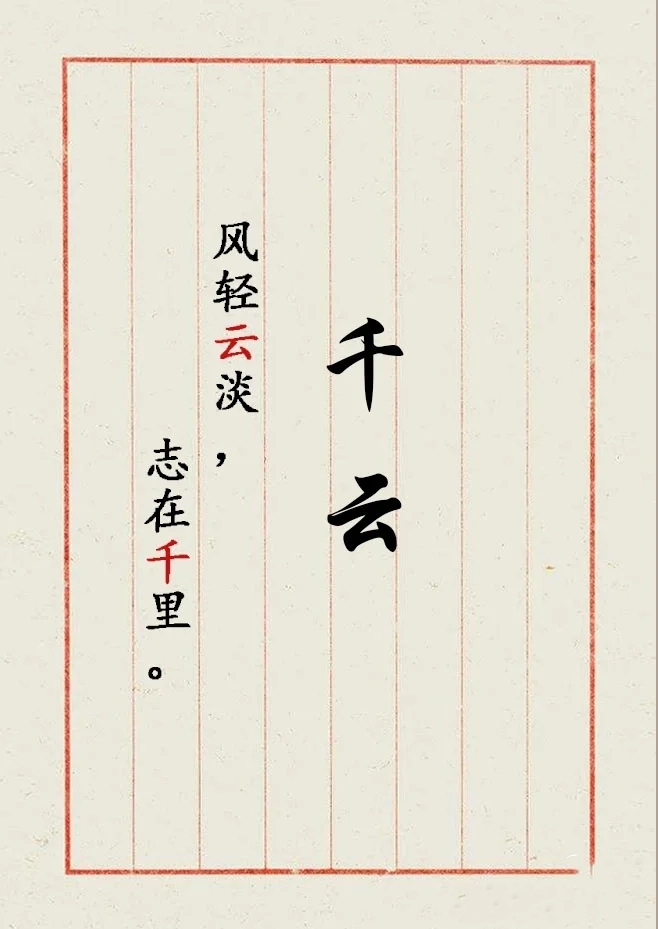 千云
风轻云淡，
志在千里。